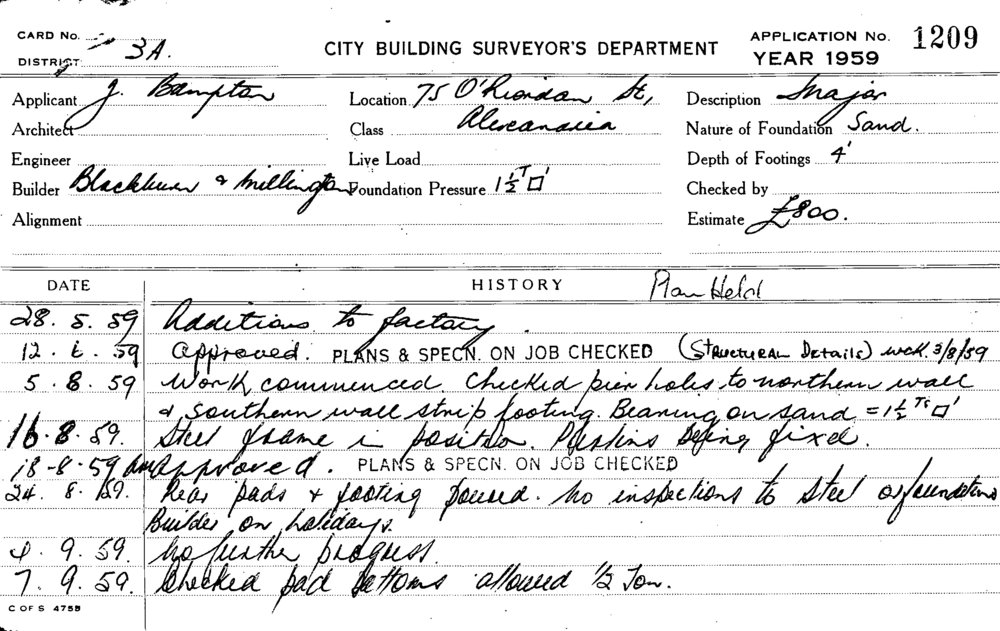 CARD No.
DISTRICT 3A.
CITY BUILDING SURVEYOR'S DEPARTMENT
APPLICATION No. 1209
YEAR 1959
Applicant J. Bampton
Location 75 O'Riordan St,
Description Major
Architect
Class Alexandria
Nature of Foundation Sand.
Engineer
Live Load
Depth of Footings 4'
Builder Blackburn & Millington
Foundation Pressure 1½ T □'
Checked by
Alignment
Estimate £800.
DATE HISTORY Plan Held
28. 5. 59 Additions to factory.
12. 6. 59 Approved. PLANS & SPECN. ON JOB CHECKED (Structural Details) WCK. 3/8/59
5. 8. 59 Work commenced. Checked pier holes to northern wall
& Southern wall strip footing. Bearing on sand = 1½ Ts □'
16. 8. 59. Steel frame in position. Purlins being fixed.
18-8-59 Approved. PLANS & SPECN. ON JOB CHECKED
24. 8. 59. Rear pads & footing poured. No inspections to steel or foundations
Builder on holidays.
4. 9. 59. No further progress.
7. 9. 59. Checked pad bottoms allowed ½ Ton.
C OF S 4755